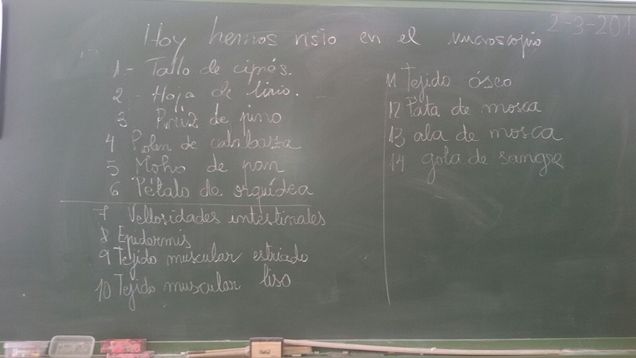 2-3-201
Hoy hemos visto en el microscopio
1.- Tallo de ciprés.
2.- Hoja de lirio.
3 Raíz de pino
4 Polen de calabaza
5 Moho de pan
6 Pétalo de orquídea
7 Vellosidades intestinales
8 Epidermis
9 Tejido muscular estriado
10 Tejido muscular liso
11 Tejido óseo
12 Pata de mosca
13 ala de mosca
14 gota de sangre